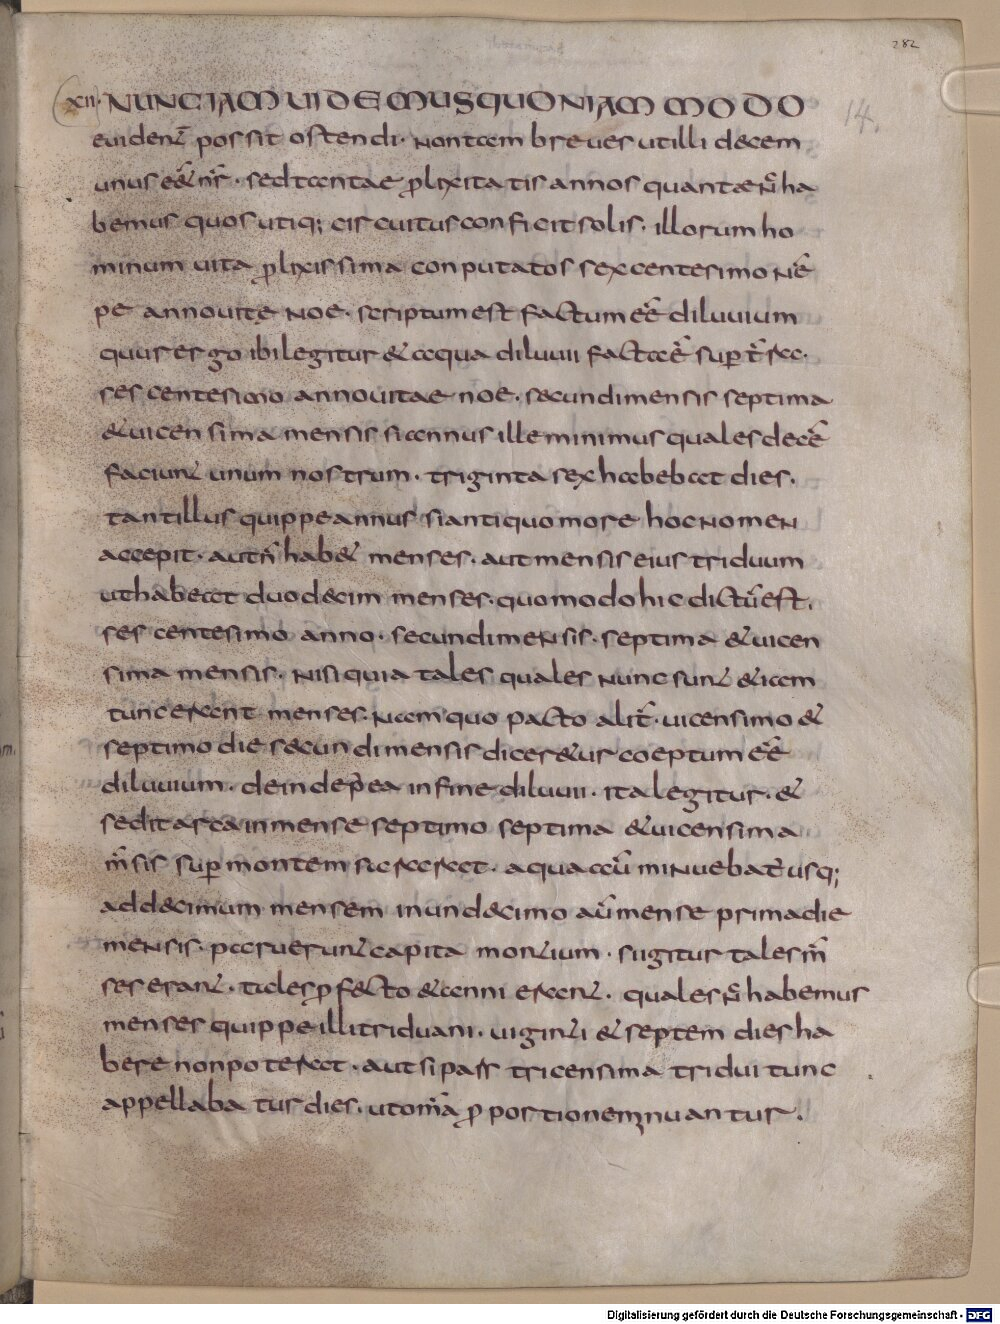 282
14.
XII· NUNC IAM UIDEMUS QUONIAM MODO
euident possit ostendi· non tam breues ut illi decem
unus eēt nr̄· sed tantae p̱lixitatis annos quanta et nc̄ ha
bemus quos utiq; circuitus conficit solis· illorum ho
minum uita p̱lixissima conputatos sexcentesimo nē
pe anno uitę noe· scriptum est factum eē diluuium
quur ergo ibi legitur & aqua diluuii facta ē sup̱ t̄ra·
sescentesimo anno uitae noe· secundi mensis septima
& uicensima mensis si annus ille minimus quales decē
faciunt unum nostrum· triginta sex habebat dies·
tantillus quippe annus si antiquo more hoc nomen
accepit· aut n̄ hab& menses· aut mensis eius triduum
ut habeat duodecim menses· quomodo hic dictū est·
sescentesimo anno· secundi mensis· septima & uicen
sima mensis· nisi quia tales quales nunc sunt &iam
tunc erant menses· nam quo pacto alit̄· uicensimo &
septimo die secundi mensis dicer&ur coeptum eē
diluuium· deinde p̄ea in fine diluuii· ita legitur· &
sedit arca in mense septimo septima & uicensima
m̄sis sup̱ montem ararat· aqua aū minuebat̄ usq;
ad decimum mensem in undecimo aū mense prima die
mensis· paruerunt capita montium· si igitur tales m̄
ses erant· tales p̱fecto & anni erant· quales nc̄ habemus
menses quippe illi triduani· uiginti & septem dies ha
bere non poterant· aut si pars tricensima tridui tunc
appellabatur dies· ut om̄ia p̱ portionem mnuantur·
Digitalisierung gefördert durch die Deutsche Forschungsgemeinschaft - DFG